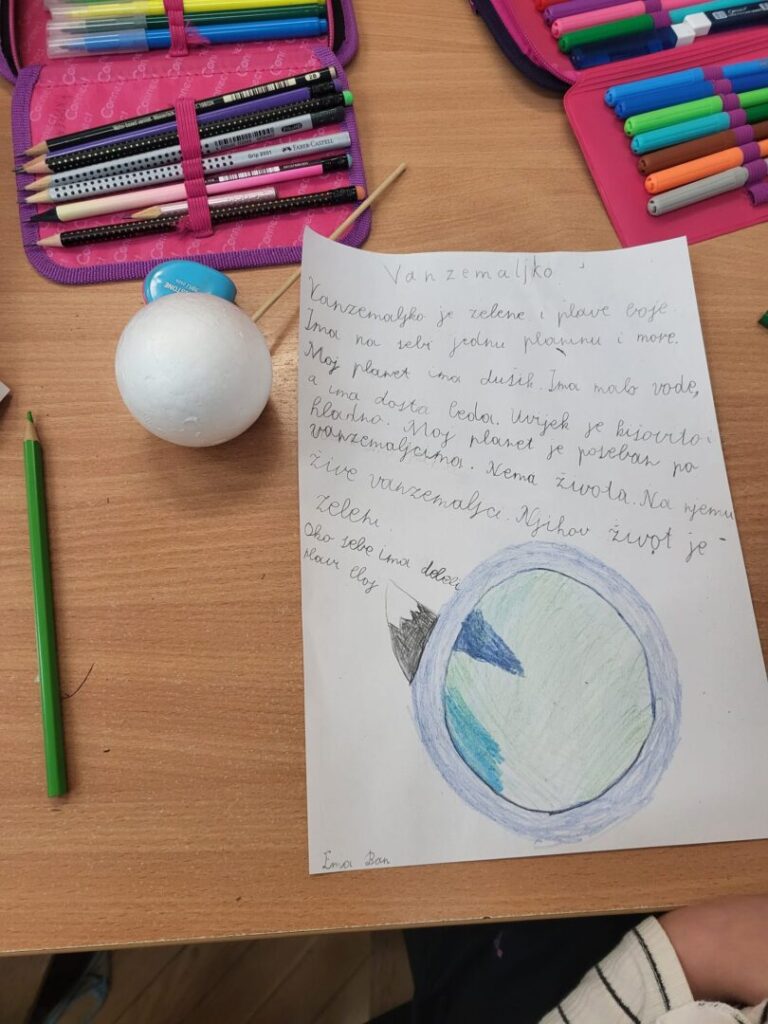 Connect
Connect
Connect
Connect
2B
Grip 2001 FABER-CASTELL
Vanzemaljko
Vanzemaljko je zelene i plave boje.
Ima na sebi jednu planinu i more.
Moj planet ima dušik. Ima malo vode,
a ima dosta leda. Uvijek je kišovito i
hladno. Moj planet je poseban po
vanzemaljcima. Nema života. Na njemu
žive vanzemaljci. Njihov život je
zeleni.
Oko sebe ima debeli
plavi sloj
Ema Ban